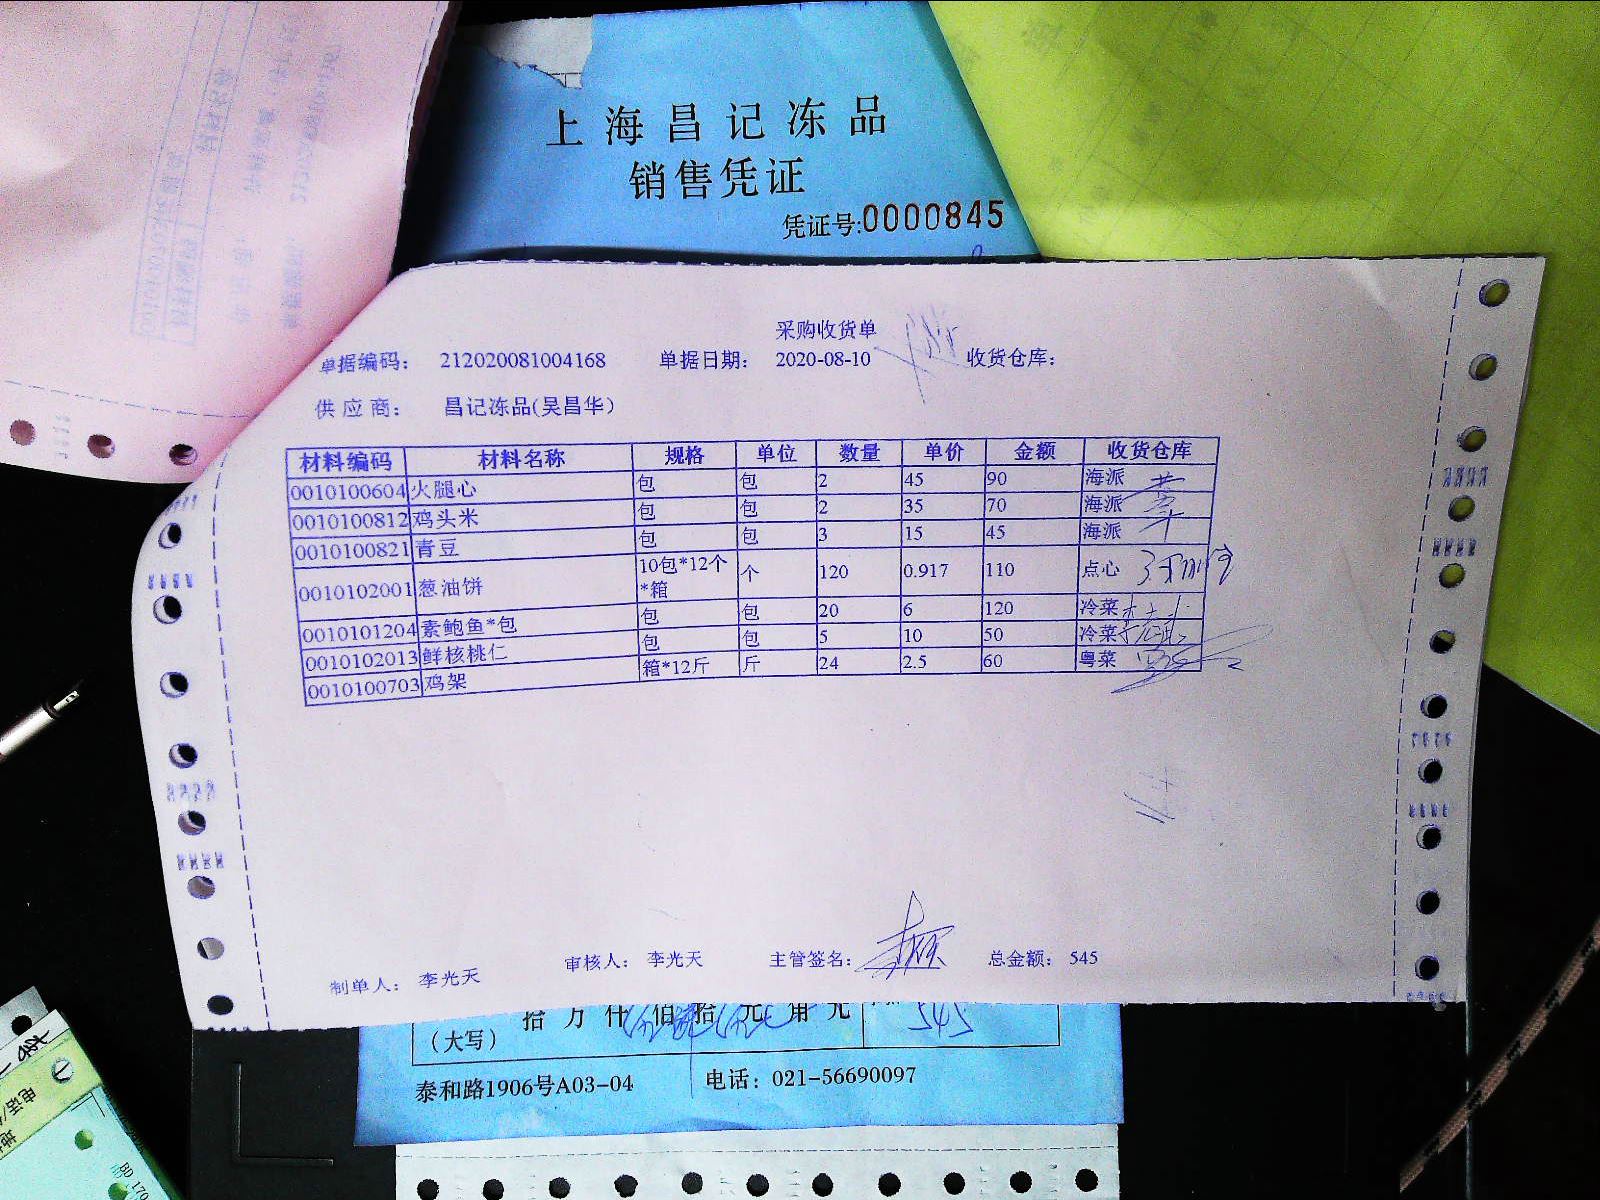 上海昌记冻品
销售凭证
凭证号:0000845
采购收货单
单据编码: 212020081004168 单据日期: 2020-08-10 收货仓库:
供应商: 昌记冻品(吴昌华)
材料编码 材料名称 规格 单位 数量 单价 金额 收货仓库
0010100604 火腿心 包 包 2 45 90 海派
0010100812 鸡头米 包 包 2 35 70 海派
0010100821 青豆 包 包 3 15 45 海派
0010102001 葱油饼 10包*12个*箱 个 120 0.917 110 点心
0010101204 素鲍鱼*包 包 包 20 6 120 冷菜
0010102013 鲜核桃仁 包 包 5 10 50 冷菜
0010100703 鸡架 箱*12斤 斤 24 2.5 60 粤菜
制单人: 李光天 审核人: 李光天 主管签名: 总金额: 545
拾万仟佰拾元角元 545
(大写)
泰和路1906号A03-04 电话: 021-56690097